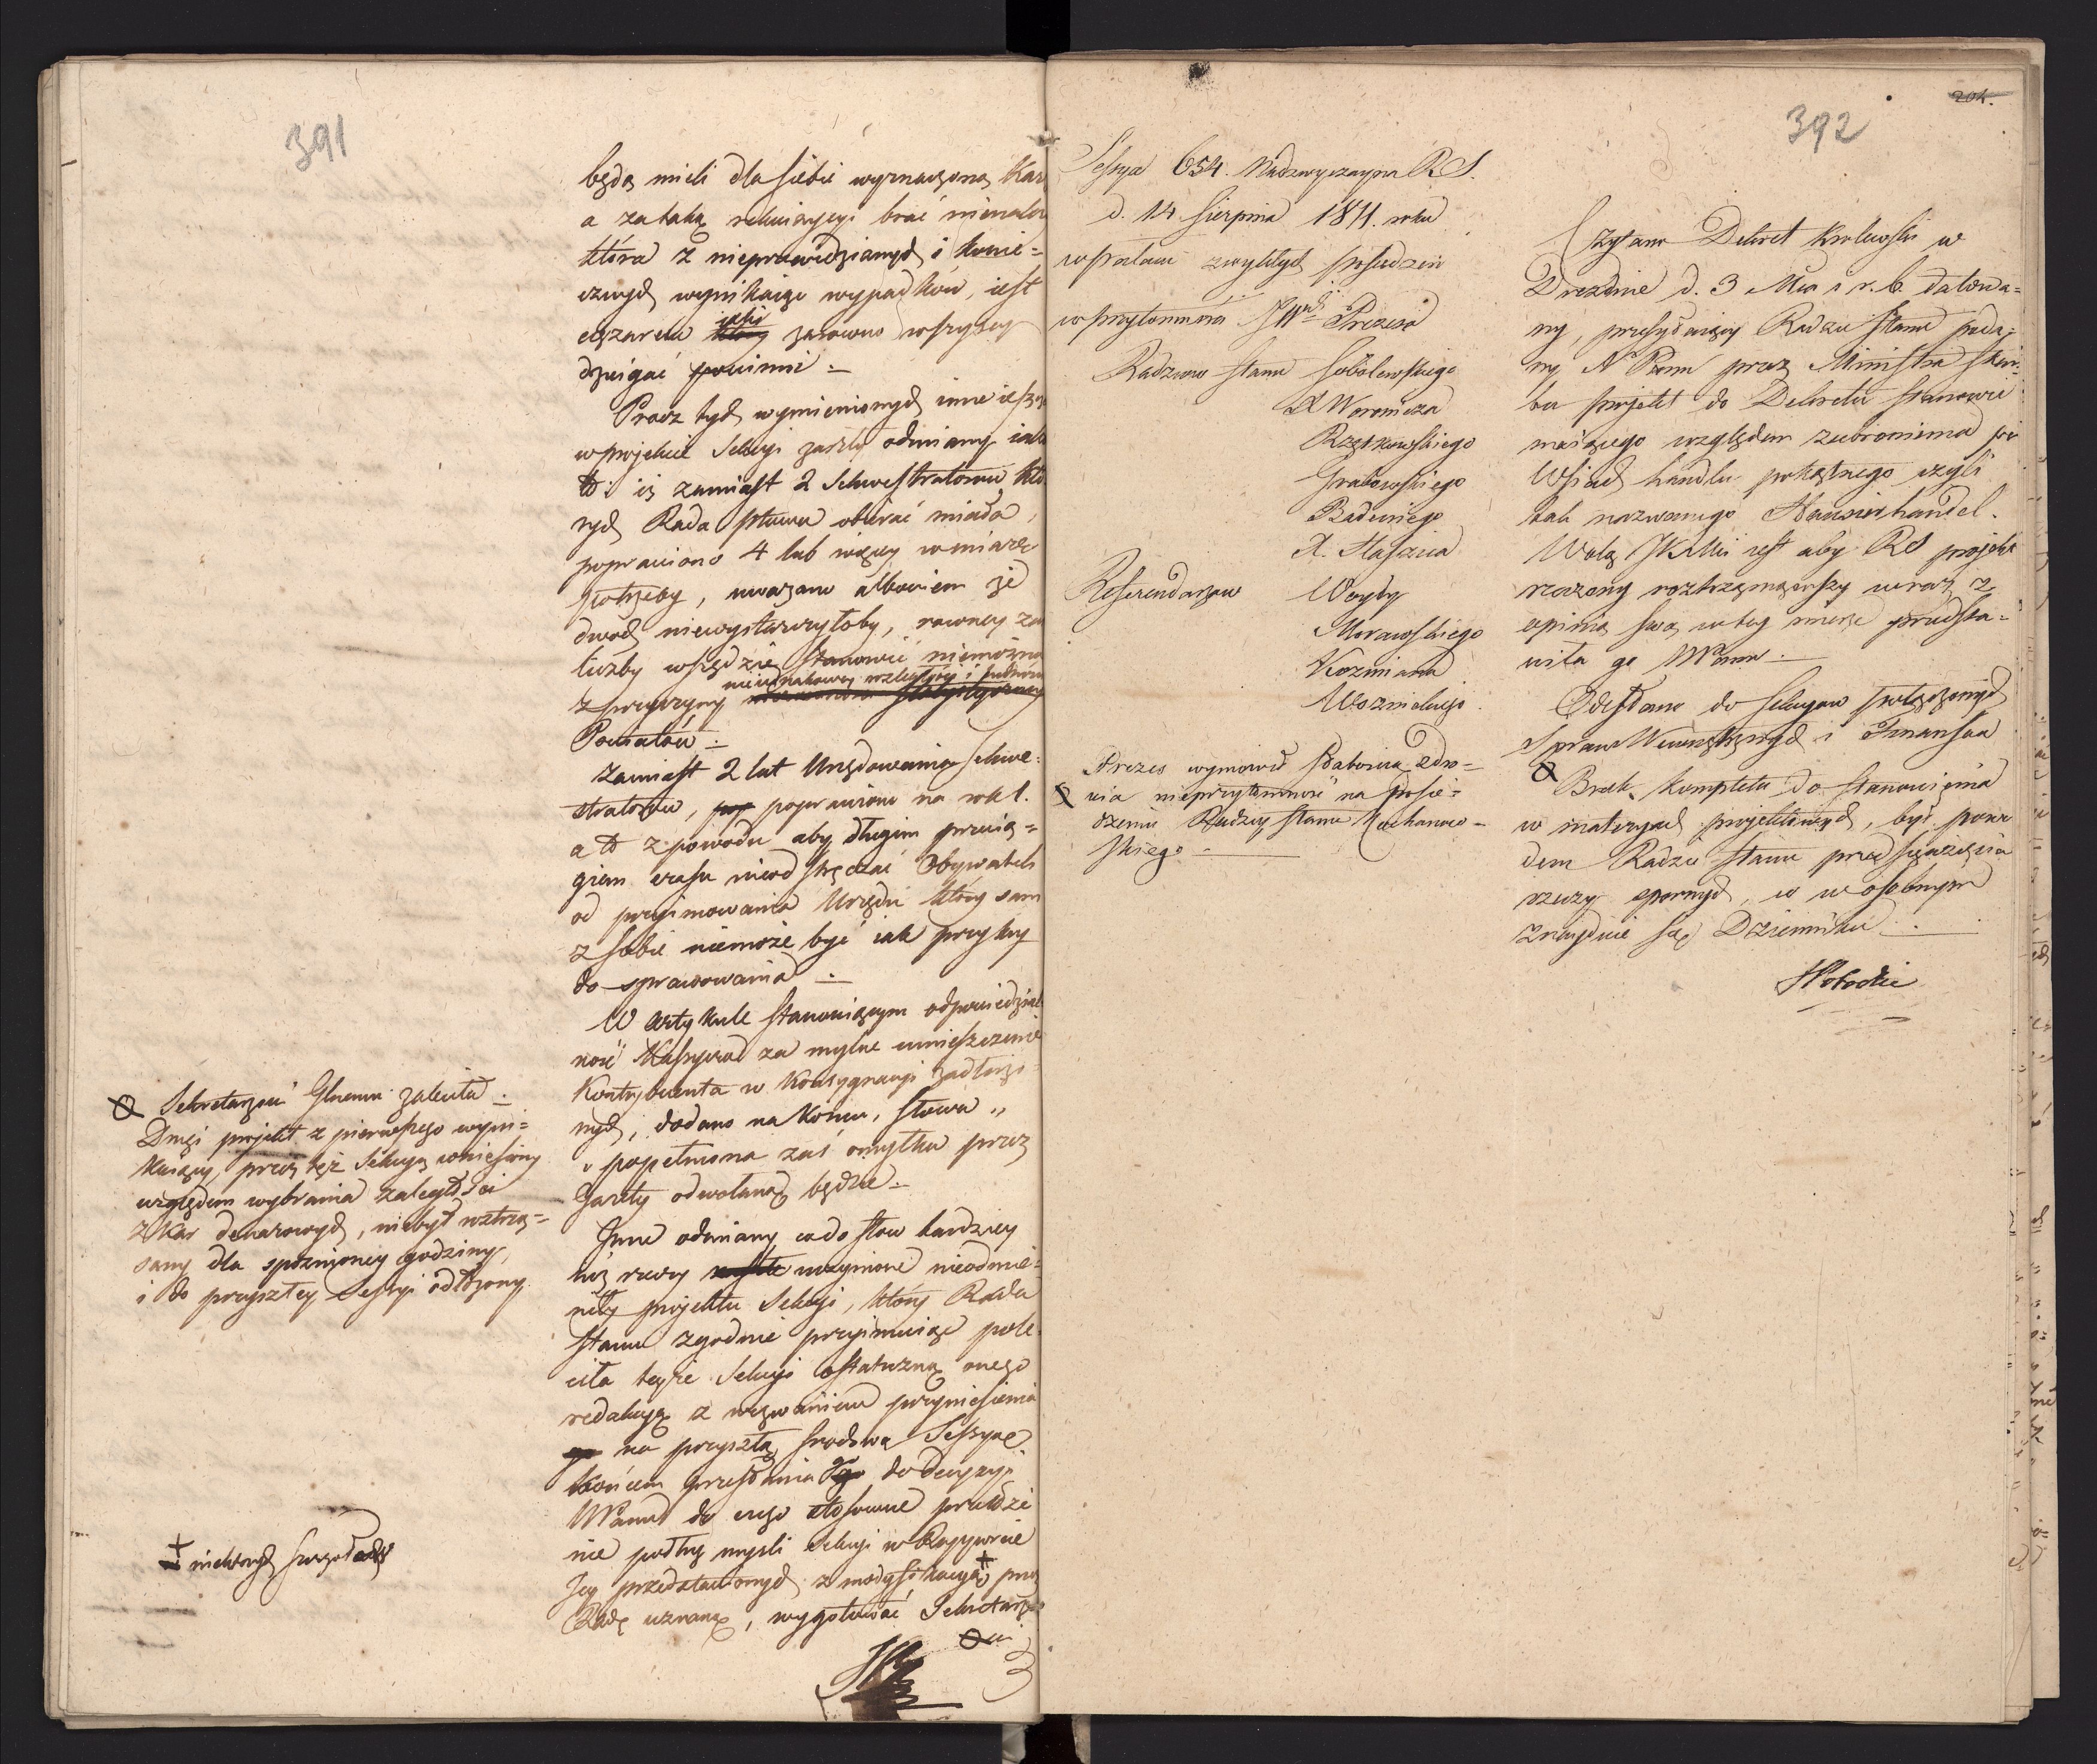 391
będą mieli dla siebie wyznaczoną Kar
a za taką rekwizycyi brać nienale
która z nieprzewidzianych i konie=
cznych wynikaiąc wypadków, iest
ciężarem iaki zarówno wszyscy
dzwigać powinni.
Prócz tych wymienionych inne ieszcze
w projekcie Sekcyi zaszły odmiany iako
to: iż zamiast 2 Sekwestratorów któ
rych Rada ptowa obierać miała,
poprawiono 4 lub więcey w miarę
potrzeby, uważano albowiem że
dwóch niewystarczyłoby, rowney zaś
liczby wszędzie stanowić niemożna
z przyczyny nieiednakowey rozległości i ludności
Powiatów.
Zamiast 2 lat Urzędowania Sekwe=
stratorów, poprawiono na rok 1.
a to z powodu aby długim przecią=
giem czasu nieodstręczać Obywateli
od przyimowania Urzędu który sam
z siebie niemoże być iak przykry
do sprawowania.
W artykule stanowiącym odpowiedzial
ność Kassyera za mylne umieszczenie
Kontrybuenta w Konsygnacyi zadłużo=
nych, dodano na końcu, słowa "
" popełniona zaś omyłka przez
Gazety odwołaną będzie.
Inne odmiany co do słow bardziey
niż rzeczy uczynione nieodmie=
niły projektu Sekcyi, który Rada
Stanu zgodnie przyimuiąc pole=
ciła teyże Sekcyi ostateczną onego
redakcyą z wezwaniem przyniesienia
na przyszłą srodową Sessyą
końcem przesłania go do decyzyi
NPanu do czego stosowne przełoże
nie podług mysli Sekcyi w Rapporcie
Jey przedstawionych z modyfikacyą + przez
Radę uznaną, wygotować Sekretarzo
wi
Sekretarzowi Głnemu zaleciła.
Drugi projekt z pierwszego wyni=
kaiący, przez tęż Sekcyą wniesiony
względem wybrania zaległości
z Kar dekarowych, niebył roztrzą=
sany dla spóźnioney godziny,
i do przyszłey Sessyi odłożony.
+ niektorych szczegołach
204.
392
Sessya 654. Nadzwyczayna RS.
d. 14 Sierpnia 1811. roku
w pałacu zwykłych posiedzeń
w przytomności JW Prezesa
Radzców Stanu Sobolewskiego
X Woronicza
Rzętkowskiego
Grabowskiego
Badeniego
X. Staszica
Referendarzow Woydy
Morawskiego
Kozmiana
Woznickiego.
Prezes wymowił słabością zdro=
wia nieprzytomność na posie=
dzeniu Radzcy Stanu Kochanow=
skiego.
Czytano Dekret Krolewski w
Dreznie d. 3 Mca i r. b. datowa=
ny, przesyłaiący Radzie Stanu poda=
ny N Panu przez Ministra Skar=
bu projekt do Dekretu stanowić
maiącego względem zabronienia po
Wsiach handlu pokątnego czyli
tak nazwanego Hausierhandel.
Wolą JKMci iest aby RS projekt
rzeczony roztrząsnąwszy wraz z
opinią swą w tey mierze przedsta=
wiła go NPanu.
Odesłano do Sekcyow połączonych
Spraw Wewnętrznych i Finansów
Brak kompletu do stanowienia
w materyach projektowych, był powo
dem Radzie Stanu przedsięwzięcia
rzeczy spornych, co w osobnym
znayduie się Dzienniku.
SPotocki